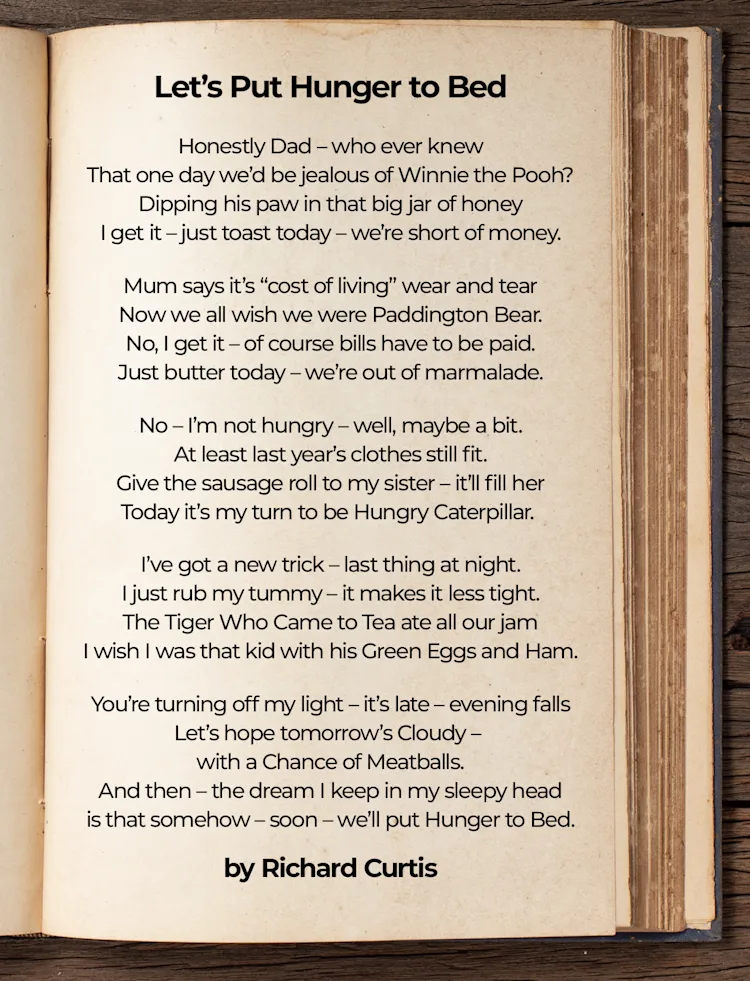 Let's Put Hunger to Bed
Honestly Dad – who ever knew
That one day we'd be jealous of Winnie the Pooh?
Dipping his paw in that big jar of honey
I get it – just toast today – we're short of money.
Mum says it's “cost of living” wear and tear
Now we all wish we were Paddington Bear.
No, I get it – of course bills have to be paid.
Just butter today – we're out of marmalade.
No – I'm not hungry – well, maybe a bit.
At least last year's clothes still fit.
Give the sausage roll to my sister – it'll fill her
Today it's my turn to be Hungry Caterpillar.
I've got a new trick – last thing at night.
I just rub my tummy – it makes it less tight.
The Tiger Who Came to Tea ate all our jam
I wish I was that kid with his Green Eggs and Ham.
You're turning off my light – it's late – evening falls
Let's hope tomorrow's Cloudy –
with a Chance of Meatballs.
And then – the dream I keep in my sleepy head
is that somehow – soon – we'll put Hunger to Bed.
by Richard Curtis